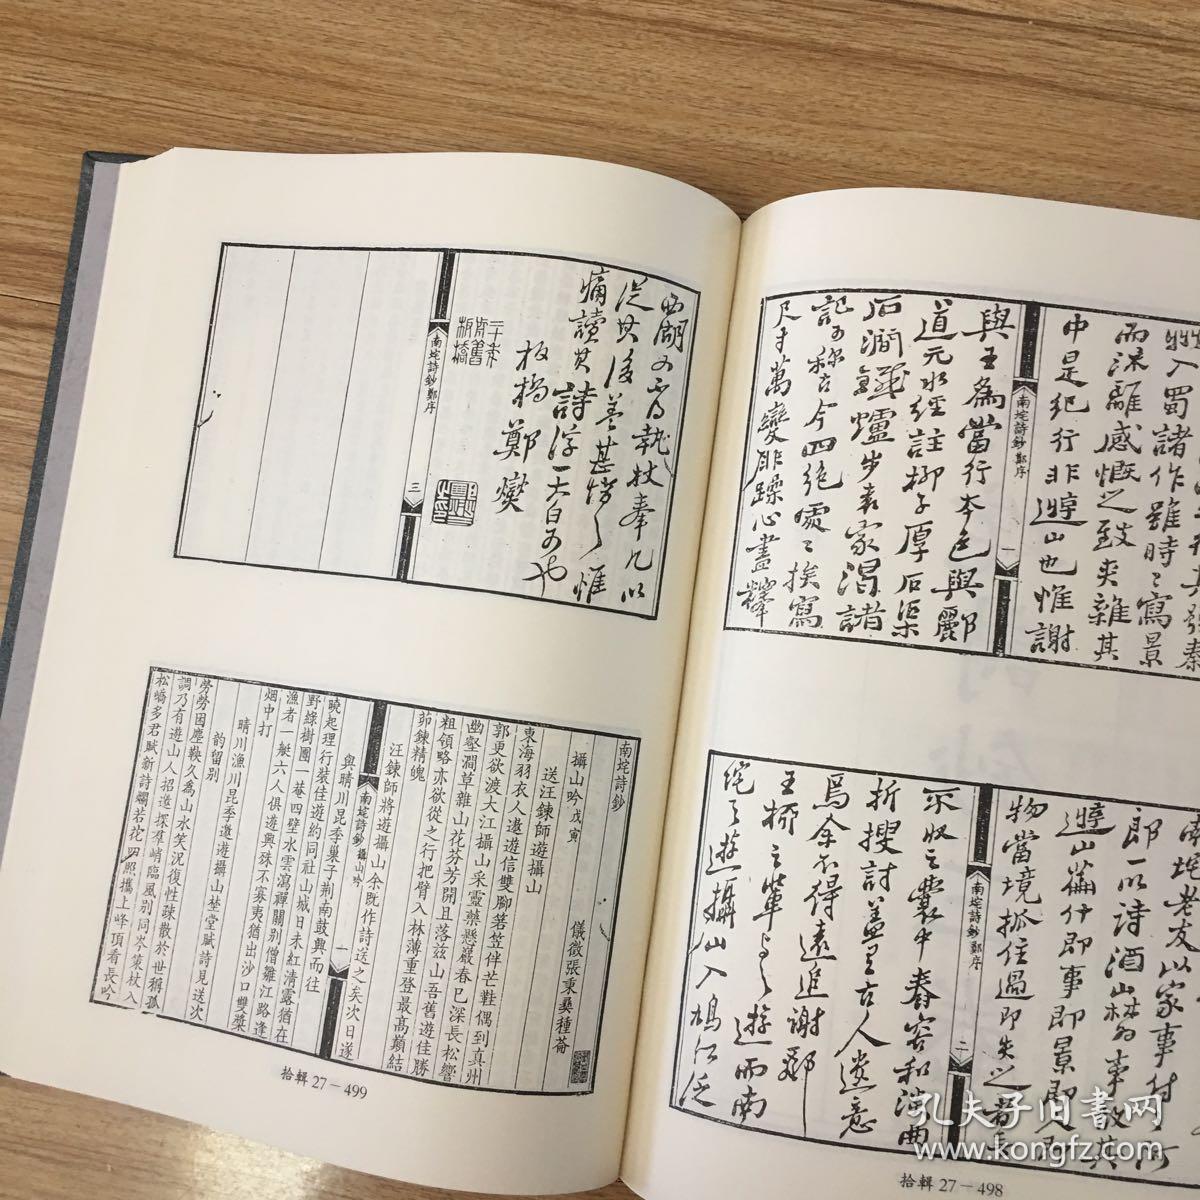 入蜀諸作雖時〻寫景
而深離感慨之致夾雜其
中是紀行非遊山也惟謝
南垞詩鈔 鄭序 一
與王為當行本色與酈
道元水經註柳子厚石渠
石澗鐵爐步袁家渴諸
記可稱古今四絕處〻挨寫
尺寸萬變非躁心盡釋
南垞老友以家事付阿
郎一以詩酒山林為事故其
遊山即事即景即人即
物當境抓住過即失之者
南垞詩鈔 鄭序 二
不收之囊中舂容和曲
折搜討蓋是古人遺意
焉余不得遠追謝酈
王柳之輩與之遊而南
垞之遊攝山入鳩江泛
拾輯 27－498
西湖又不得執杖奉几以
從其後蓋甚愧之惟
痛讀其詩浮一大白可也
板橋鄭燮
二十年前舊板橋
南垞詩鈔 鄭序 三
南垞詩鈔
攝山吟戊寅 儀徵張東桑種菴
送汪鍊師遊攝山
東海羽衣人遨遊信雙腳箬笠伴芒鞋偶到真州
郭更欲渡大江攝山采靈藥懸巖春已深長松響
幽壑澗草雜山花芬芳開且落茲山吾舊遊佳勝
粗領略亦欲從之行把臂入林薄重登最高巔結
茆鍊精魄
汪鍊師將遊攝山余既作詩送之矣次日遂
南垞詩鈔 攝山吟 一
與晴川昆季巢子荆南鼓興而往
曉起理行裝佳遊約同社山城日未紅清露猶在
野綠樹團一菴四壁水雲瀉禪關別僧雛江路逢
漁者一艇六人俱遊興殊不寡夷猶出沙口雙槳
烟中打
晴川漁川昆季邀遊攝山埜堂賦詩見送次
韵留別
勞勞困塵鞅久為山水笑況復性疎散於世稱孤
調乃有遊山人招邀探羣峭臨風別同岑策杖入
松嶠多君賦新詩爛若花四照攜上峰頂看長吟
拾輯 27－499
孔夫子旧书网
www.kongfz.com